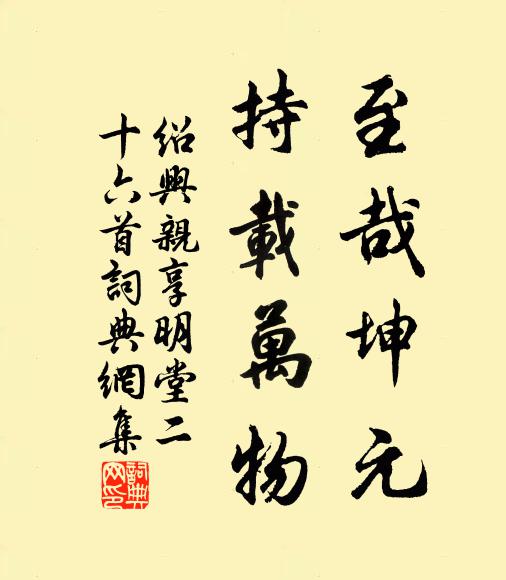 至哉坤元
持載萬物
紹興親享明堂二
十六首詞典網集
詞典網印